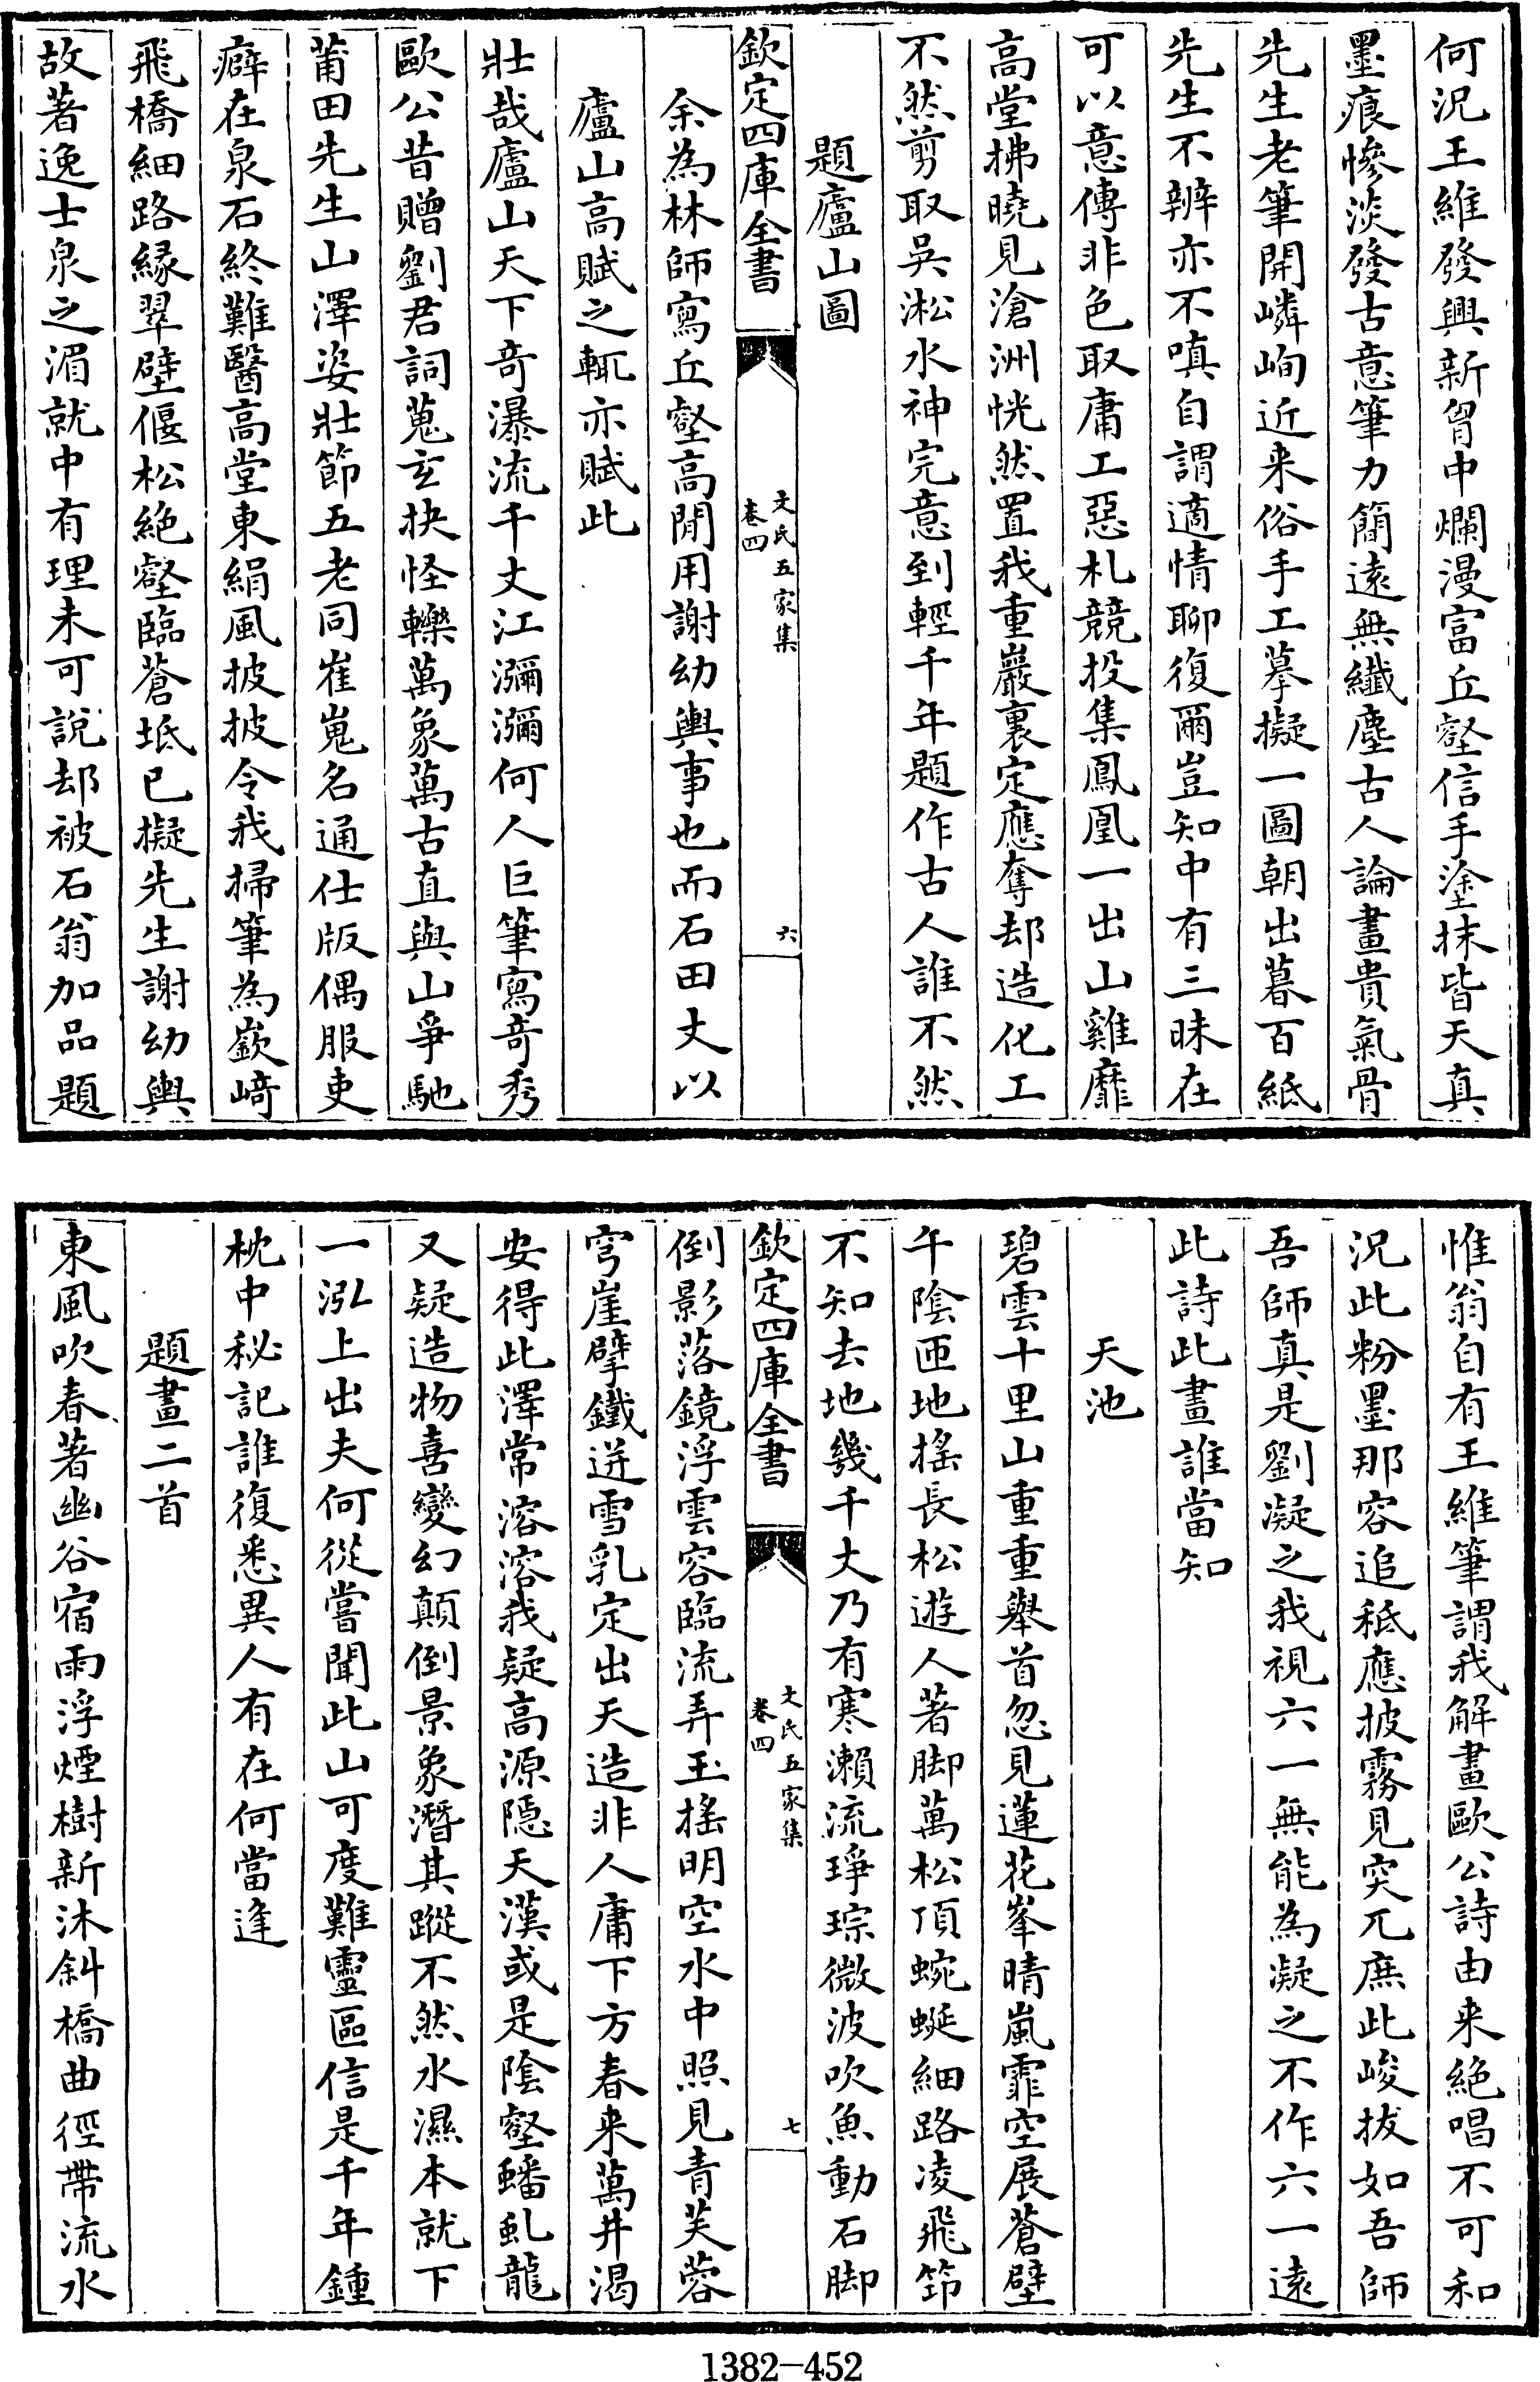 何況王維發興新胷中爛漫富丘壑信手塗抹皆天真
墨痕慘淡發古意筆力簡遠無纎塵古人論畫貴氣骨
先生老筆開嶙峋近来俗手工摹擬一圖朝出暮百紙
先生不辨亦不嗔自謂適情聊復爾豈知中有三昧在
可以意傳非色取庸工惡札競投集鳳凰一出山雞靡
高堂拂曉見滄洲恍然置我重巖裏定應奪却造化工
不然剪取吳淞水神完意到輕千年題作古人誰不然
題廬山圖
欽定四庫全書
文氏五家集
卷四
六
余為林師寫丘壑高閒用謝幼輿事也而石田丈以
廬山高賦之輒亦賦此
壯哉廬山天下竒瀑流千丈江瀰瀰何人巨筆寫竒秀
歐公昔贈劉君詞蒐玄抉怪轢萬象萬古直與山爭馳
莆田先生山澤姿壯節五老同崔嵬名通仕版偶服吏
癖在泉石終難醫高堂東絹風披披令我掃筆為嶔﨑
飛橋細路緣翠壁偃松絶壑臨蒼坻已擬先生謝幼輿
故著逸士泉之湄就中有理未可說却被石翁加品題
惟翁自有王維筆謂我解畫歐公詩由来絶唱不可和
況此粉墨那容追秪應披霧見突兀庶此峻拔如吾師
吾師真是劉凝之我視六一無能為凝之不作六一遠
此詩此畫誰當知
天池
碧雲十里山重重舉首忽見蓮花峯晴嵐霏空展蒼壁
午陰匝地搖長松遊人著脚萬松頂蜿蜒細路凌飛笻
不知去地幾千丈乃有寒瀨流琤琮微波吹魚動石脚
欽定四庫全書
文氏五家集
卷四
七
倒影落鏡浮雲容臨流弄玉搖明空水中照見青芙蓉
穹崖擘鐵迸雪乳定出天造非人庸下方春来萬井渴
安得此澤常溶溶我疑高源隱天漢或是陰壑蟠虬龍
又疑造物喜變幻顛倒景象潛其蹤不然水濕本就下
一泓上出夫何從嘗聞此山可度難靈區信是千年鍾
枕中秘記誰復悉異人有在何當逢
題畫二首
東風吹春著幽谷宿雨浮煙樹新沐斜橋曲徑帶流水
1382-452